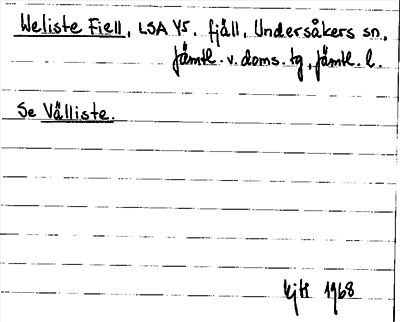 Weliste Fiell, LSA Y5. fjäll, Undersåkers sn,
Jämtl. v. doms. tg, Jämtl. l.
Se Välliste.
1968